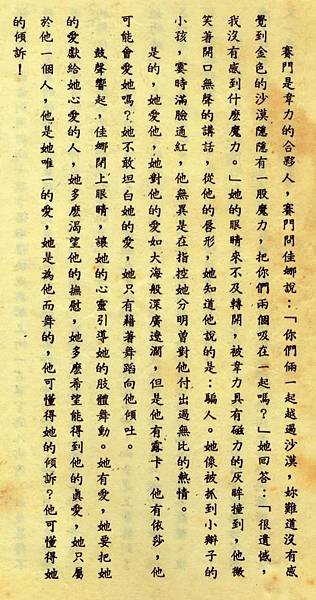 賽門是韋力的合夥人，賽門問佳娜說：「你們倆一起越過沙漠，妳難道沒有感
覺到金色的沙漠隱隱有一股魔力，把你們兩個吸在一起嗎？」她回答：「很遺憾，
我沒有感到什麼魔力。」她的眼睛來不及轉開，被韋力具有磁力的灰眸撞到，他微
笑著開口無聲的講話，從他的唇形，她知道他說的是：騙人。她像被抓到小辮子的
小孩，霎時滿臉通紅，他無異是在指控她分明曾對他付出過無比的熱情。
是的，她愛他，她對他的愛如大海般深廣遼濶，但是他有露卡、他有依莎，他
可能會愛她嗎？她不敢坦白她的愛，她只有藉著舞蹈向他傾吐。
鼓聲響起，佳娜閉上眼睛，讓她的心靈引導她的肢體舞動。她有愛，她要把她
的愛獻給她心愛的人，她多麼渴望他的撫慰，她多麼希望能得到他的真愛，她只屬
於他一個人，他是她唯一的愛，她是為他而舞的，他可懂得她的傾訴？他可懂得她
的傾訴！